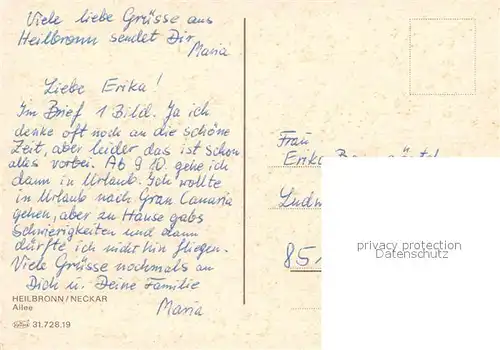 Viele liebe Grüsse aus
Heilbronn sendet Dir
Maria
Liebe Erika!
Im Brief 1 Bild. Ja ich
denke oft noch an die schöne
Zeit, aber leider das ist schon
alles vorbei. Ab 9 10. gehe ich
dann in Urlaub. Ich wollte
in Urlaub nach Gran Canaria
gehen, aber zu Hause gabs
Schwierigkeiten und dann
dürfte ich nicht hin fliegen.
Viele Grüsse nochmals an
Dich u. Deine Familie
Maria
HEILBRONN/NECKAR
Allee
31.728.19
Frau
Erika
Ludw
85
privacy protection
www.ansichtskartenversand.com